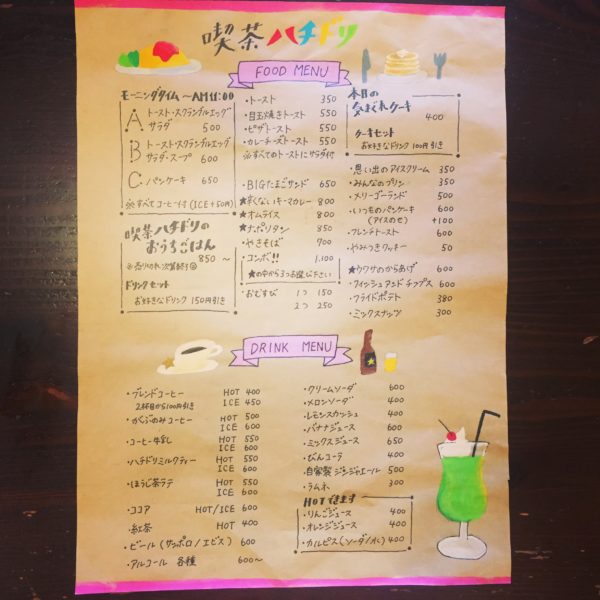 喫茶ハチドリ
FOOD MENU
モーニングタイム 〜AM11:00
A トースト・スクランブルエッグ
サラダ 500
B トースト・スクランブルエッグ
サラダ・スープ 600
C パンケーキ 650
※すべてコーヒー付(ICE+50円)
喫茶ハチドリの
おうちごはん
850〜
※売り切れ次第終了
ドリンクセット
お好きなドリンク 150円引き
・トースト 350
・目玉焼きトースト 550
・ピザトースト 550
・カレーチーズトースト 550
※すべてのトーストにサラダ付
・BIGたまごサンド 650
★辛くないキーマカレー 800
★オムライス 800
★ナポリタン 850
・やきそば 700
・コンボ!! 1.100
★の中から2つお選び下さい
・おむすび 1つ 150
2つ 250
本日の
気まぐれケーキ
400
ケーキセット
お好きなドリンク 100円引き
・思い出のアイスクリーム 350
・みんなのプリン 350
・メリーゴーランド 500
・いつものパンケーキ 600
(アイスのせ) +100
・フレンチトースト 600
・やみつきクッキー 50
★ウワサのからあげ 600
・フィッシュアンドチップス 600
・フライドポテト 380
・ミックスナッツ 300
DRINK MENU
・ブレンドコーヒー HOT 400
2杯目から100円引き ICE 450
・がぶのみコーヒー HOT 500
ICE 600
・コーヒー牛乳 HOT 550
ICE 600
・ハチドリミルクティー HOT 550
ICE 600
・ほうじ茶ラテ HOT 550
ICE 600
・ココア HOT/ICE 600
・紅茶 HOT 400
・ビール(サッポロ/エビス) 600
・アルコール 各種 600〜
・クリームソーダ 600
・メロンソーダ 400
・レモンスカッシュ 400
・バナナジュース 600
・ミックスジュース 650
・びんコーラ 400
・自家製ジンジャエール 500
・ラムネ 300
HOTできます
・りんごジュース 400
・オレンジジュース 400
・カルピス(ソーダ/水) 400